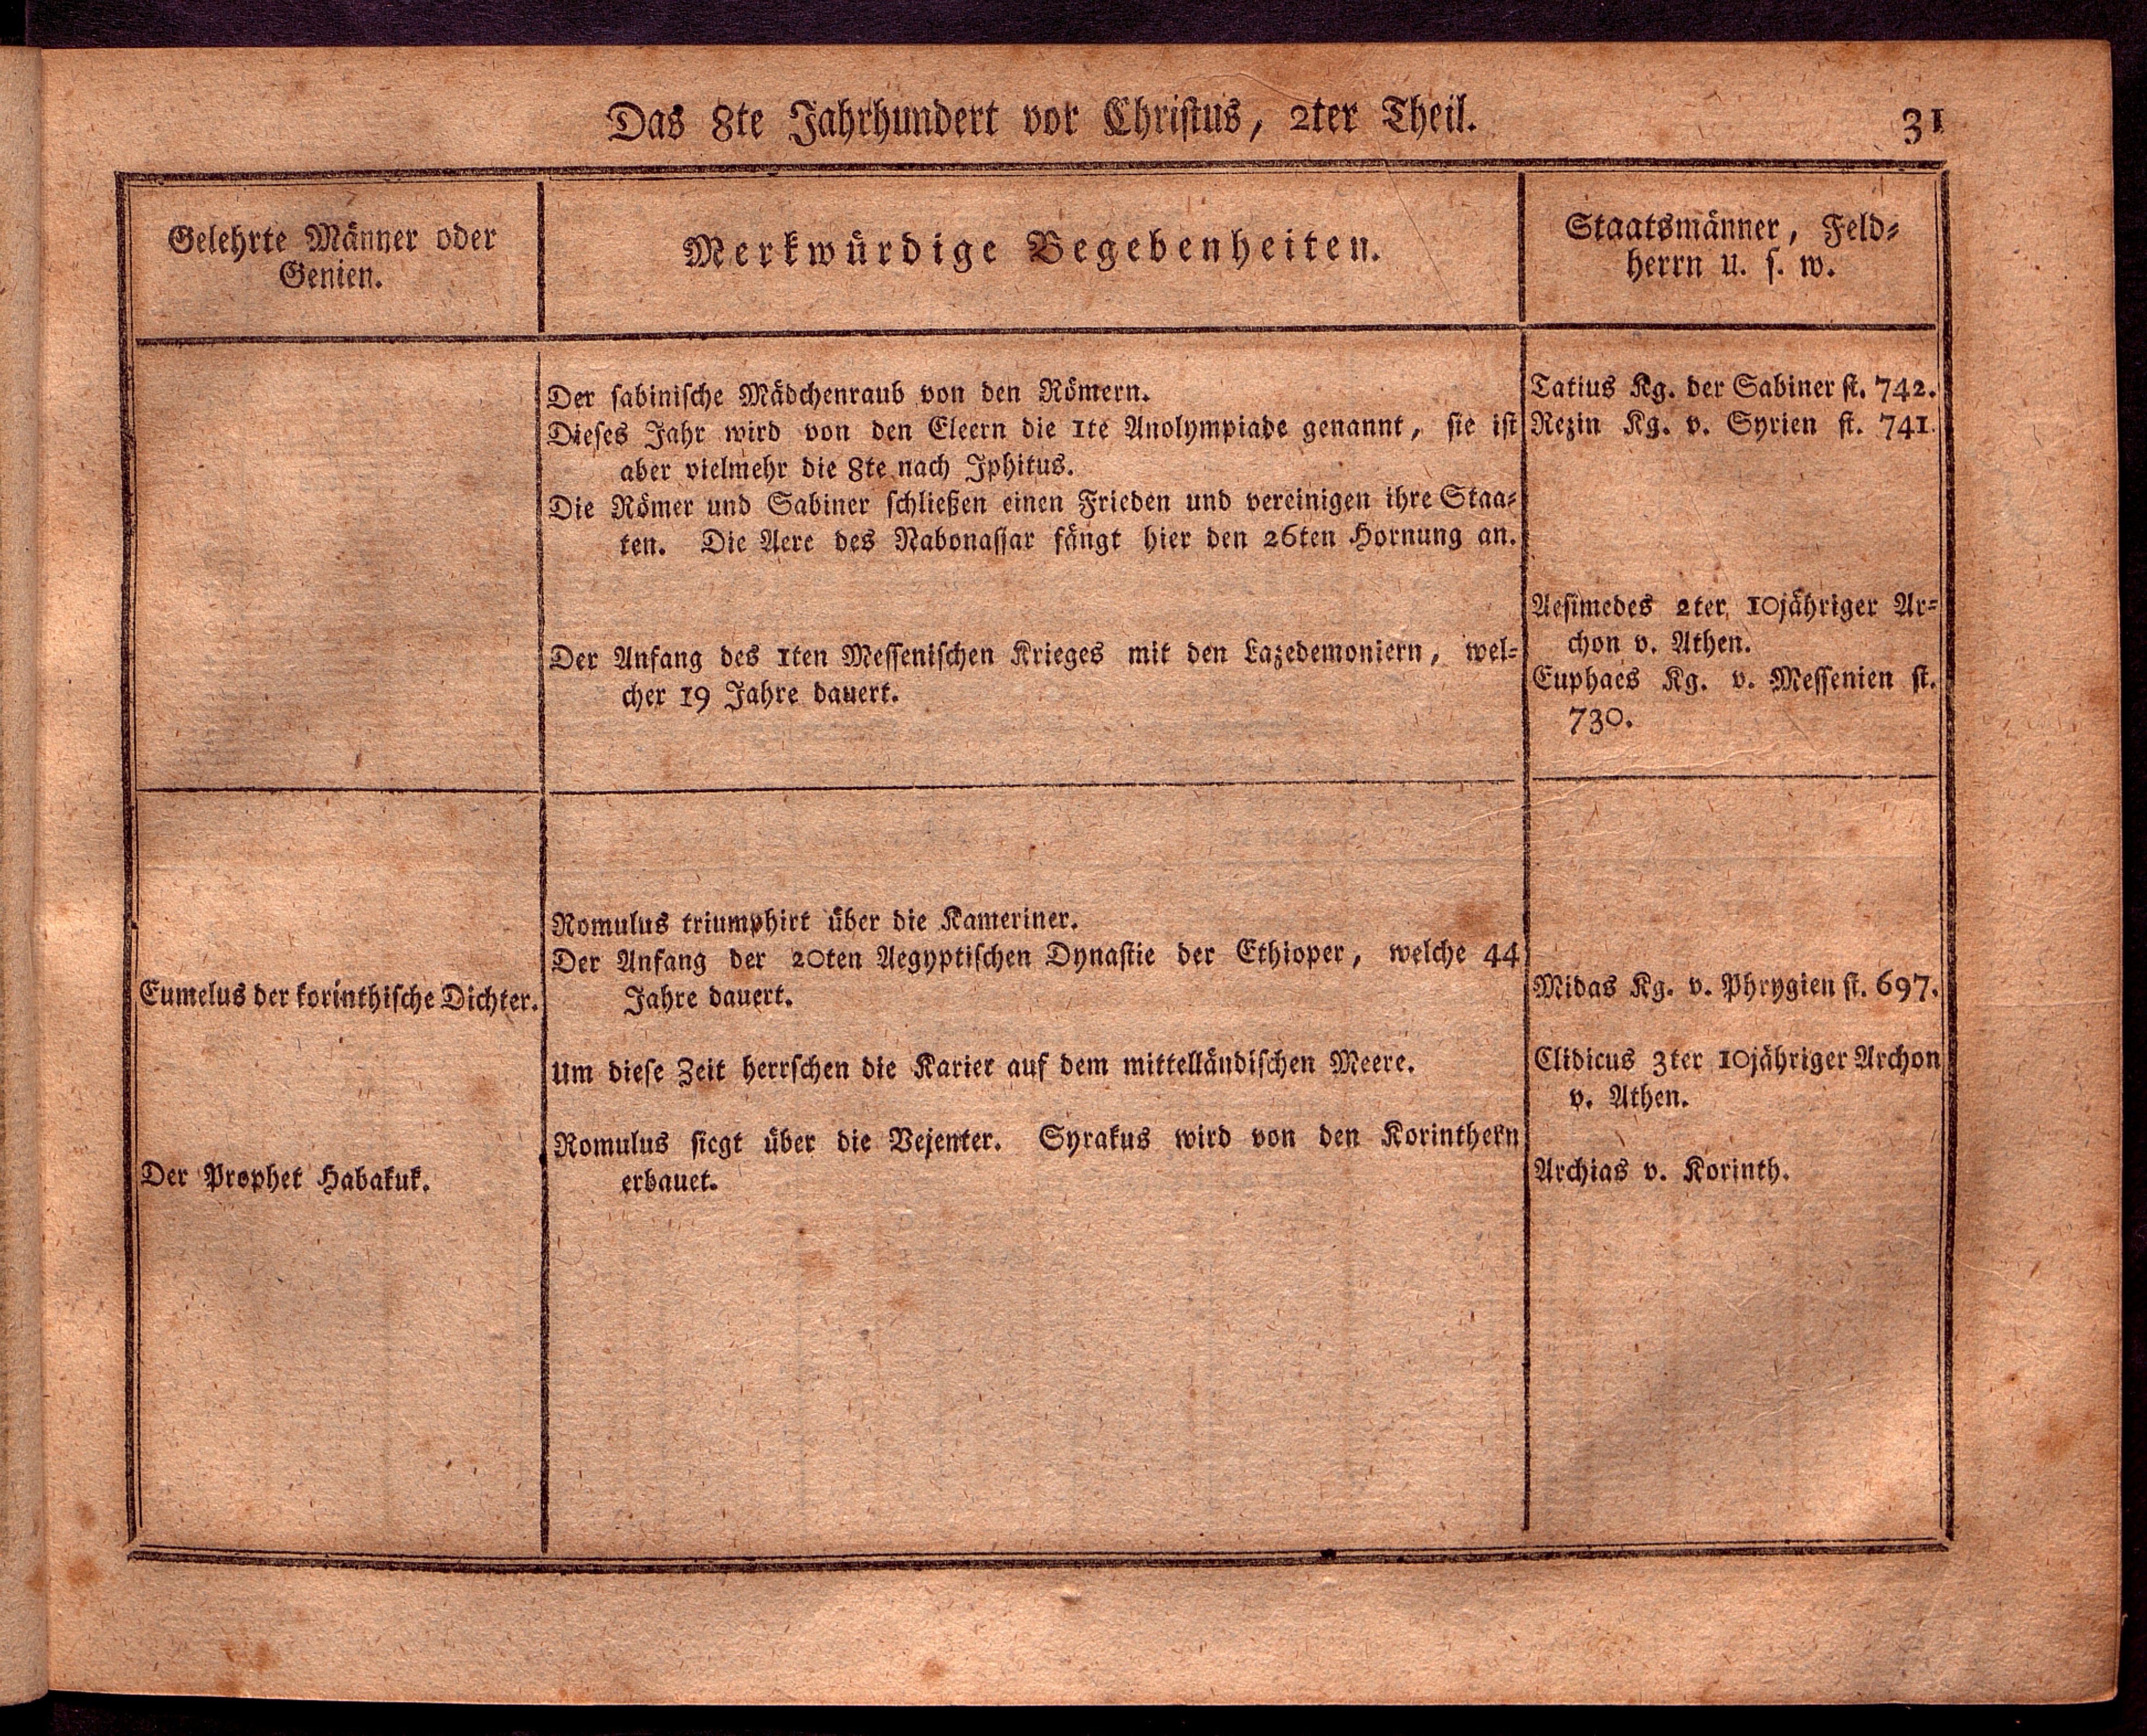 Das 8te Jahrhundert vor Christus, 2ter Theil.
31
Gelehrte Männer oder
Genien.
Merkwürdige Begebenheiten.
Staatsmänner, Feld-
herrn u. s. w.
Der sabinische Mädchenraub von den Römern.
Dieses Jahr wird von den Eleern die 1te Anolympiade genannt, sie ist
aber vielmehr die 8te nach Iphitus.
Die Römer und Sabiner schließen einen Frieden und vereinigen ihre Staa-
ten. Die Aere des Nabonassar fängt hier den 26ten Hornung an.
Der Anfang des 1ten Messenischen Krieges mit den Lazedemoniern, wel-
cher 19 Jahre dauert.
Tatius Kg. der Sabiner st. 742.
Rezin Kg. v. Syrien st. 741.
Aesimedes 2ter 10jähriger Ar-
chon v. Athen.
Euphaes Kg. v. Messenien st.
730.
Eumelus der korinthische Dichter.
Der Prophet Habakuk.
Romulus triumphirt über die Kameriner.
Der Anfang der 20ten Aegyptischen Dynastie der Ethioper, welche 44
Jahre dauert.
Um diese Zeit herrschen die Karier auf dem mittelländischen Meere.
Romulus siegt über die Vejenter. Syrakus wird von den Korinthern
erbauet.
Midas Kg. v. Phrygien st. 697.
Clidicus 3ter 10jähriger Archon
v. Athen.
Archias v. Korinth.